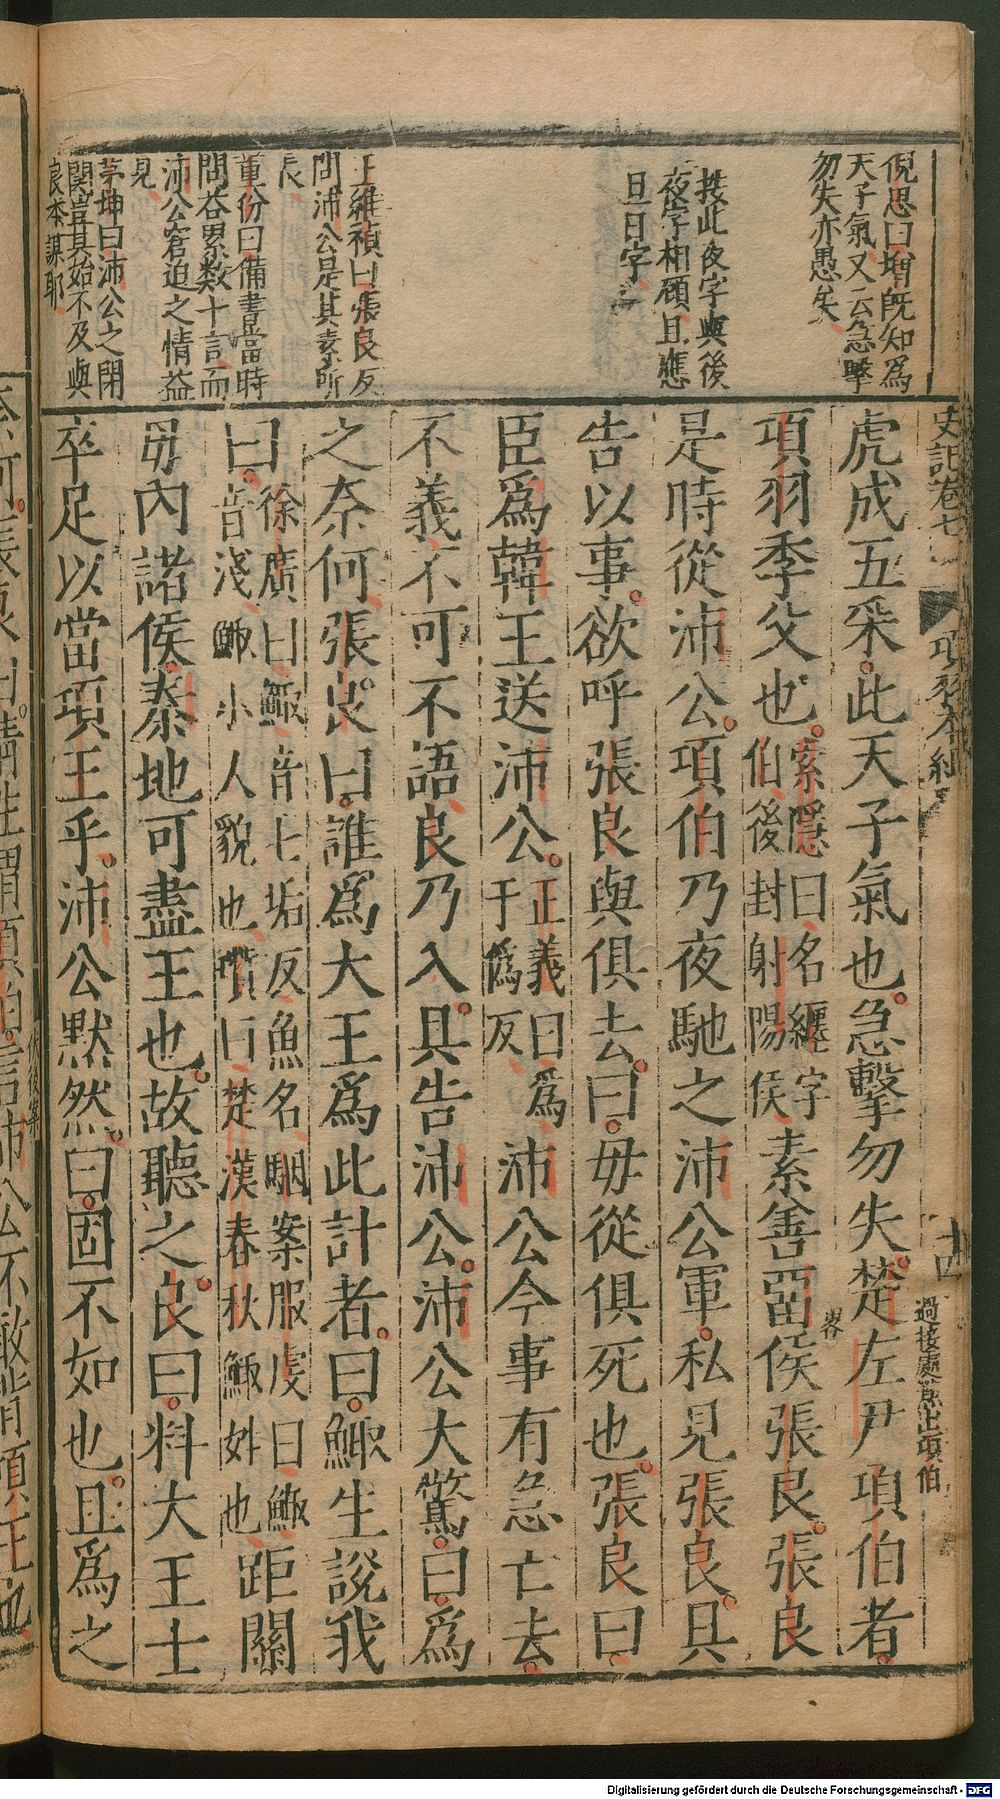 倪思曰增旣知爲
天子氣又云急擊
勿失亦愚矣
按此夜字與後
夜字相顧且應
旦日字
王維禎曰張良反
問沛公是其素所
長
董份曰備書當時
問荅累数十言而
沛公窘迫之情益
見
茅坤曰沛公之閉
関豈其始不及與
良本謀耶
史記卷七 項羽本紀 十四
過接處落出項伯
虎成五采此天子氣也急擊勿失楚左尹項伯者
項羽季父也 索隱曰名纏字伯後封射陽侯 素善畱侯張良張良
是時從沛公項伯乃夜馳之沛公軍私見張良具
告以事欲呼張良與俱去曰毋從俱死也張良曰
臣爲韓王送沛公 正義曰爲于僞反 沛公今事有急亡去
不義不可不語良乃入具告沛公沛公大驚曰爲
之奈何張良曰誰爲大王爲此計者曰鯫生說我
曰 徐廣曰鯫音士垢反魚名駰案服虔曰鯫音淺鯫小人貌也瓚曰楚漢春秋鯫姓也 距關
毋內諸侯秦地可盡王也故聽之良曰料大王士
卒足以當項王乎沛公默然曰固不如也且爲之
Digitalisierung gefördert durch die Deutsche Forschungsgemeinschaft - DFG